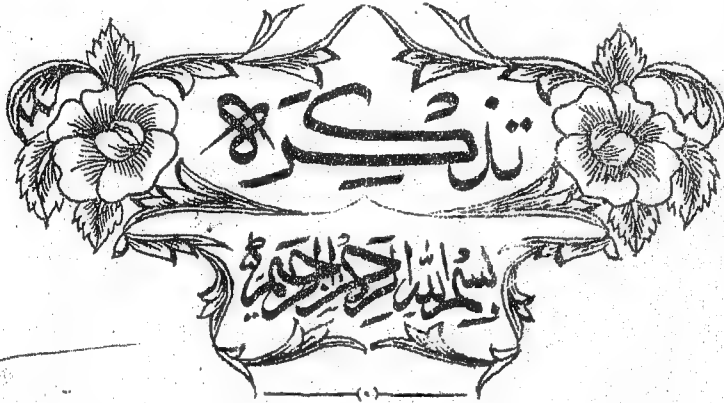 تذکِرَہ
بِسْمِ اللّٰهِ الرَّحْمٰنِ الرَّحِیْمِ